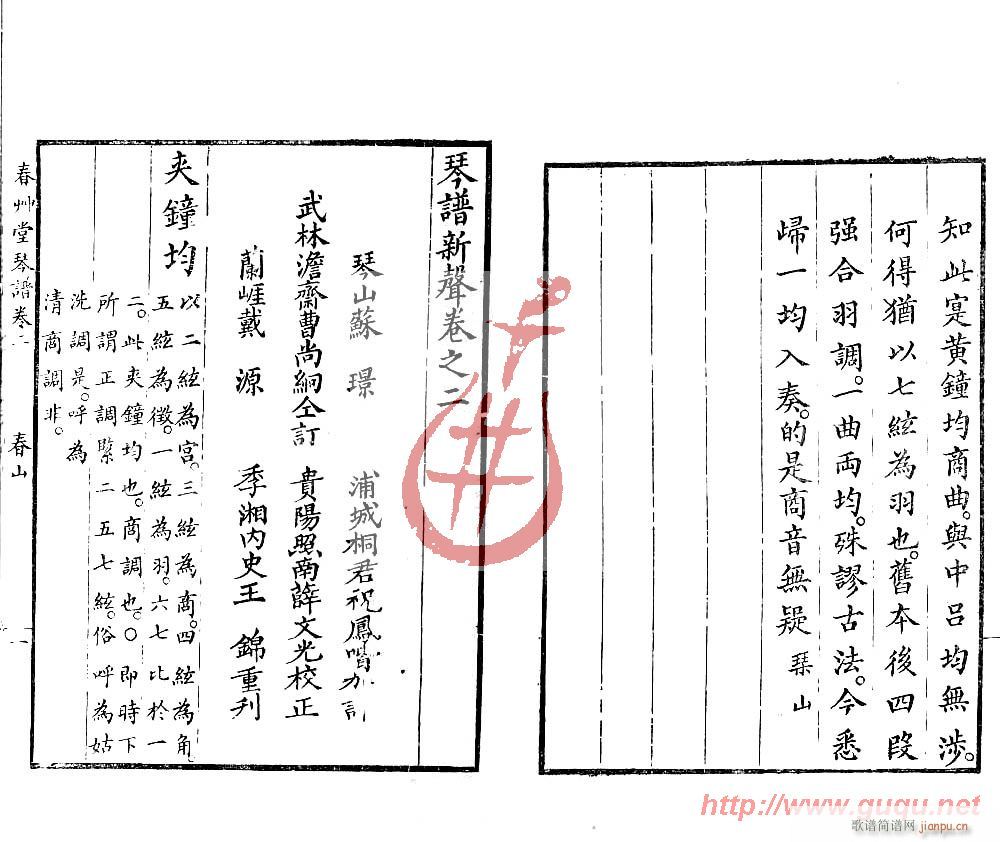 知此寔黄鐘均商曲。與中呂均無涉。
何得猶以七絃為羽也。舊本後四段
强合羽調。一曲両均。殊謬古法。今悉
歸一均入奏。的是商音無疑 琹山
琴譜新聲卷之二
琴山蘇 璟 浦城桐君祝鳳喈
武林澹齋曹尚絅仝訂 貴陽照南薛文光校正
蘭崕戴 源 季湘內史王 錦重刋
夾鐘均
以二絃為宮。三絃為商。四絃為角。
五絃為徵。一絃為羽。六七比於一
二。此夾鐘均也。商調也。〇即時下
所謂正調緊二五七絃。俗呼為姑
洗調是。呼為
清商調非。
春艸堂琴譜卷二 春山
http://www.guqu.net
歌谱简谱网 jianpu.cn